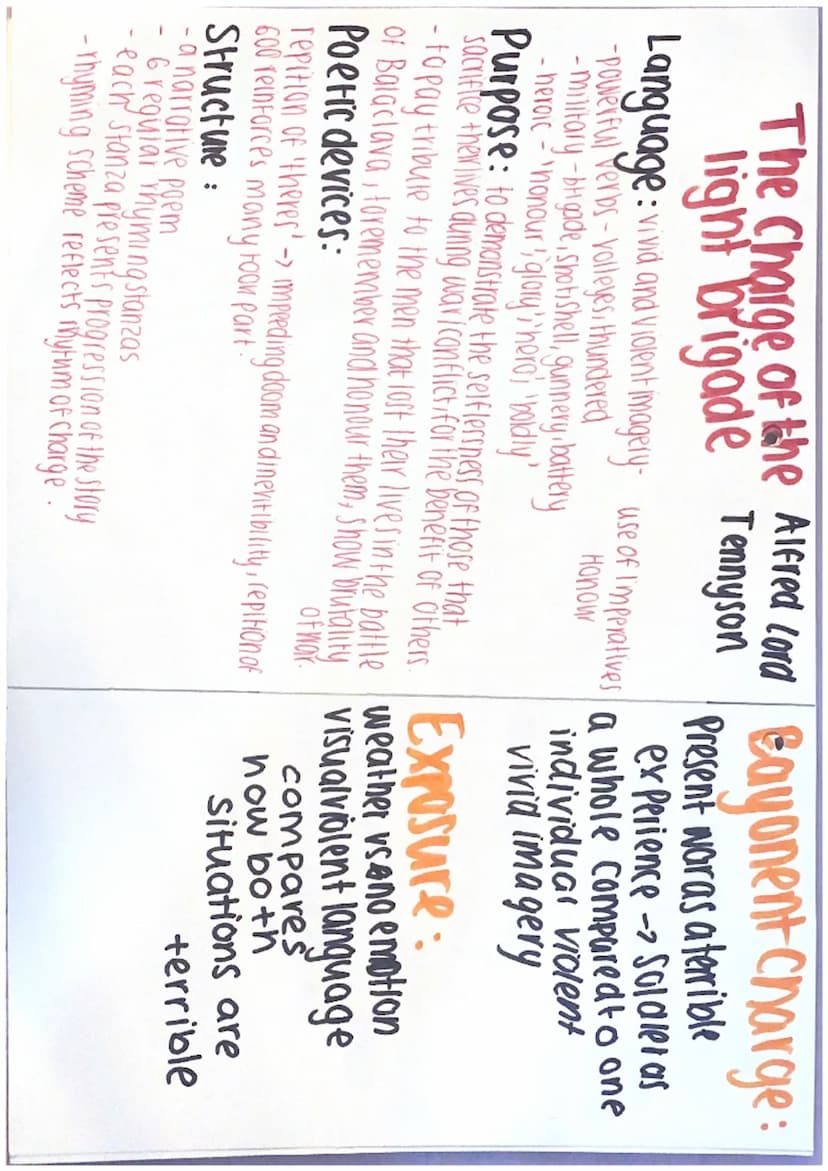 The Charge of the
light brigade
Alfred Lord
Tennyson
Language: vivid and violent imagery-
use of Imperatives
-powerful verbs - volleyes, thundered
Honour
-military -brigade, shot, shell, gunnery, battery
-heroic - 'honour', 'glory', 'hero', 'boldly'
Purpose: to demonstrate the selflessness of those that
sacrifice their lives during war/conflict, for the benefit of others.
-to pay tribute to the men that lost their lives in the battle
of Balaclava, to remember and honour them, show brutality
of war.
Poetic devices:
repition of 'theres' -> impeeding doom and inevitibility, repition of
600 reinforces many took part.
Structure:
-a narrative poem
- 6 regular rhyming stanzas
- each stanza presents progression of the story
-rhyming scheme reflects rhythm of charge.
Bayonent Charge:
Present war as a terrible
experience -> Soldier as
a whole compared to one
individual violent
vivid imagery
Exposure:
weather vs and emotion
visual violent language
compares
how both
situations are
terrible